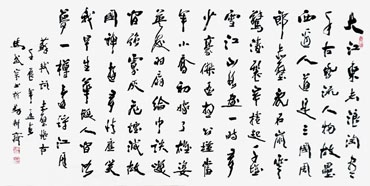 大江東去浪淘盡
千古風流人物故壘
西邊人道是三國周
郎赤壁亂石崩雲
驚濤裂岸捲起千堆
雪江山如畫一時多
少豪傑遙想公瑾當
年小喬初嫁了雄姿
英發羽扇綸巾談笑
間檣櫓灰飛煙滅故
國神遊多情應笑
我早生華髮人間如
夢一樽還酹江月
蘇軾詞赤壁懷古